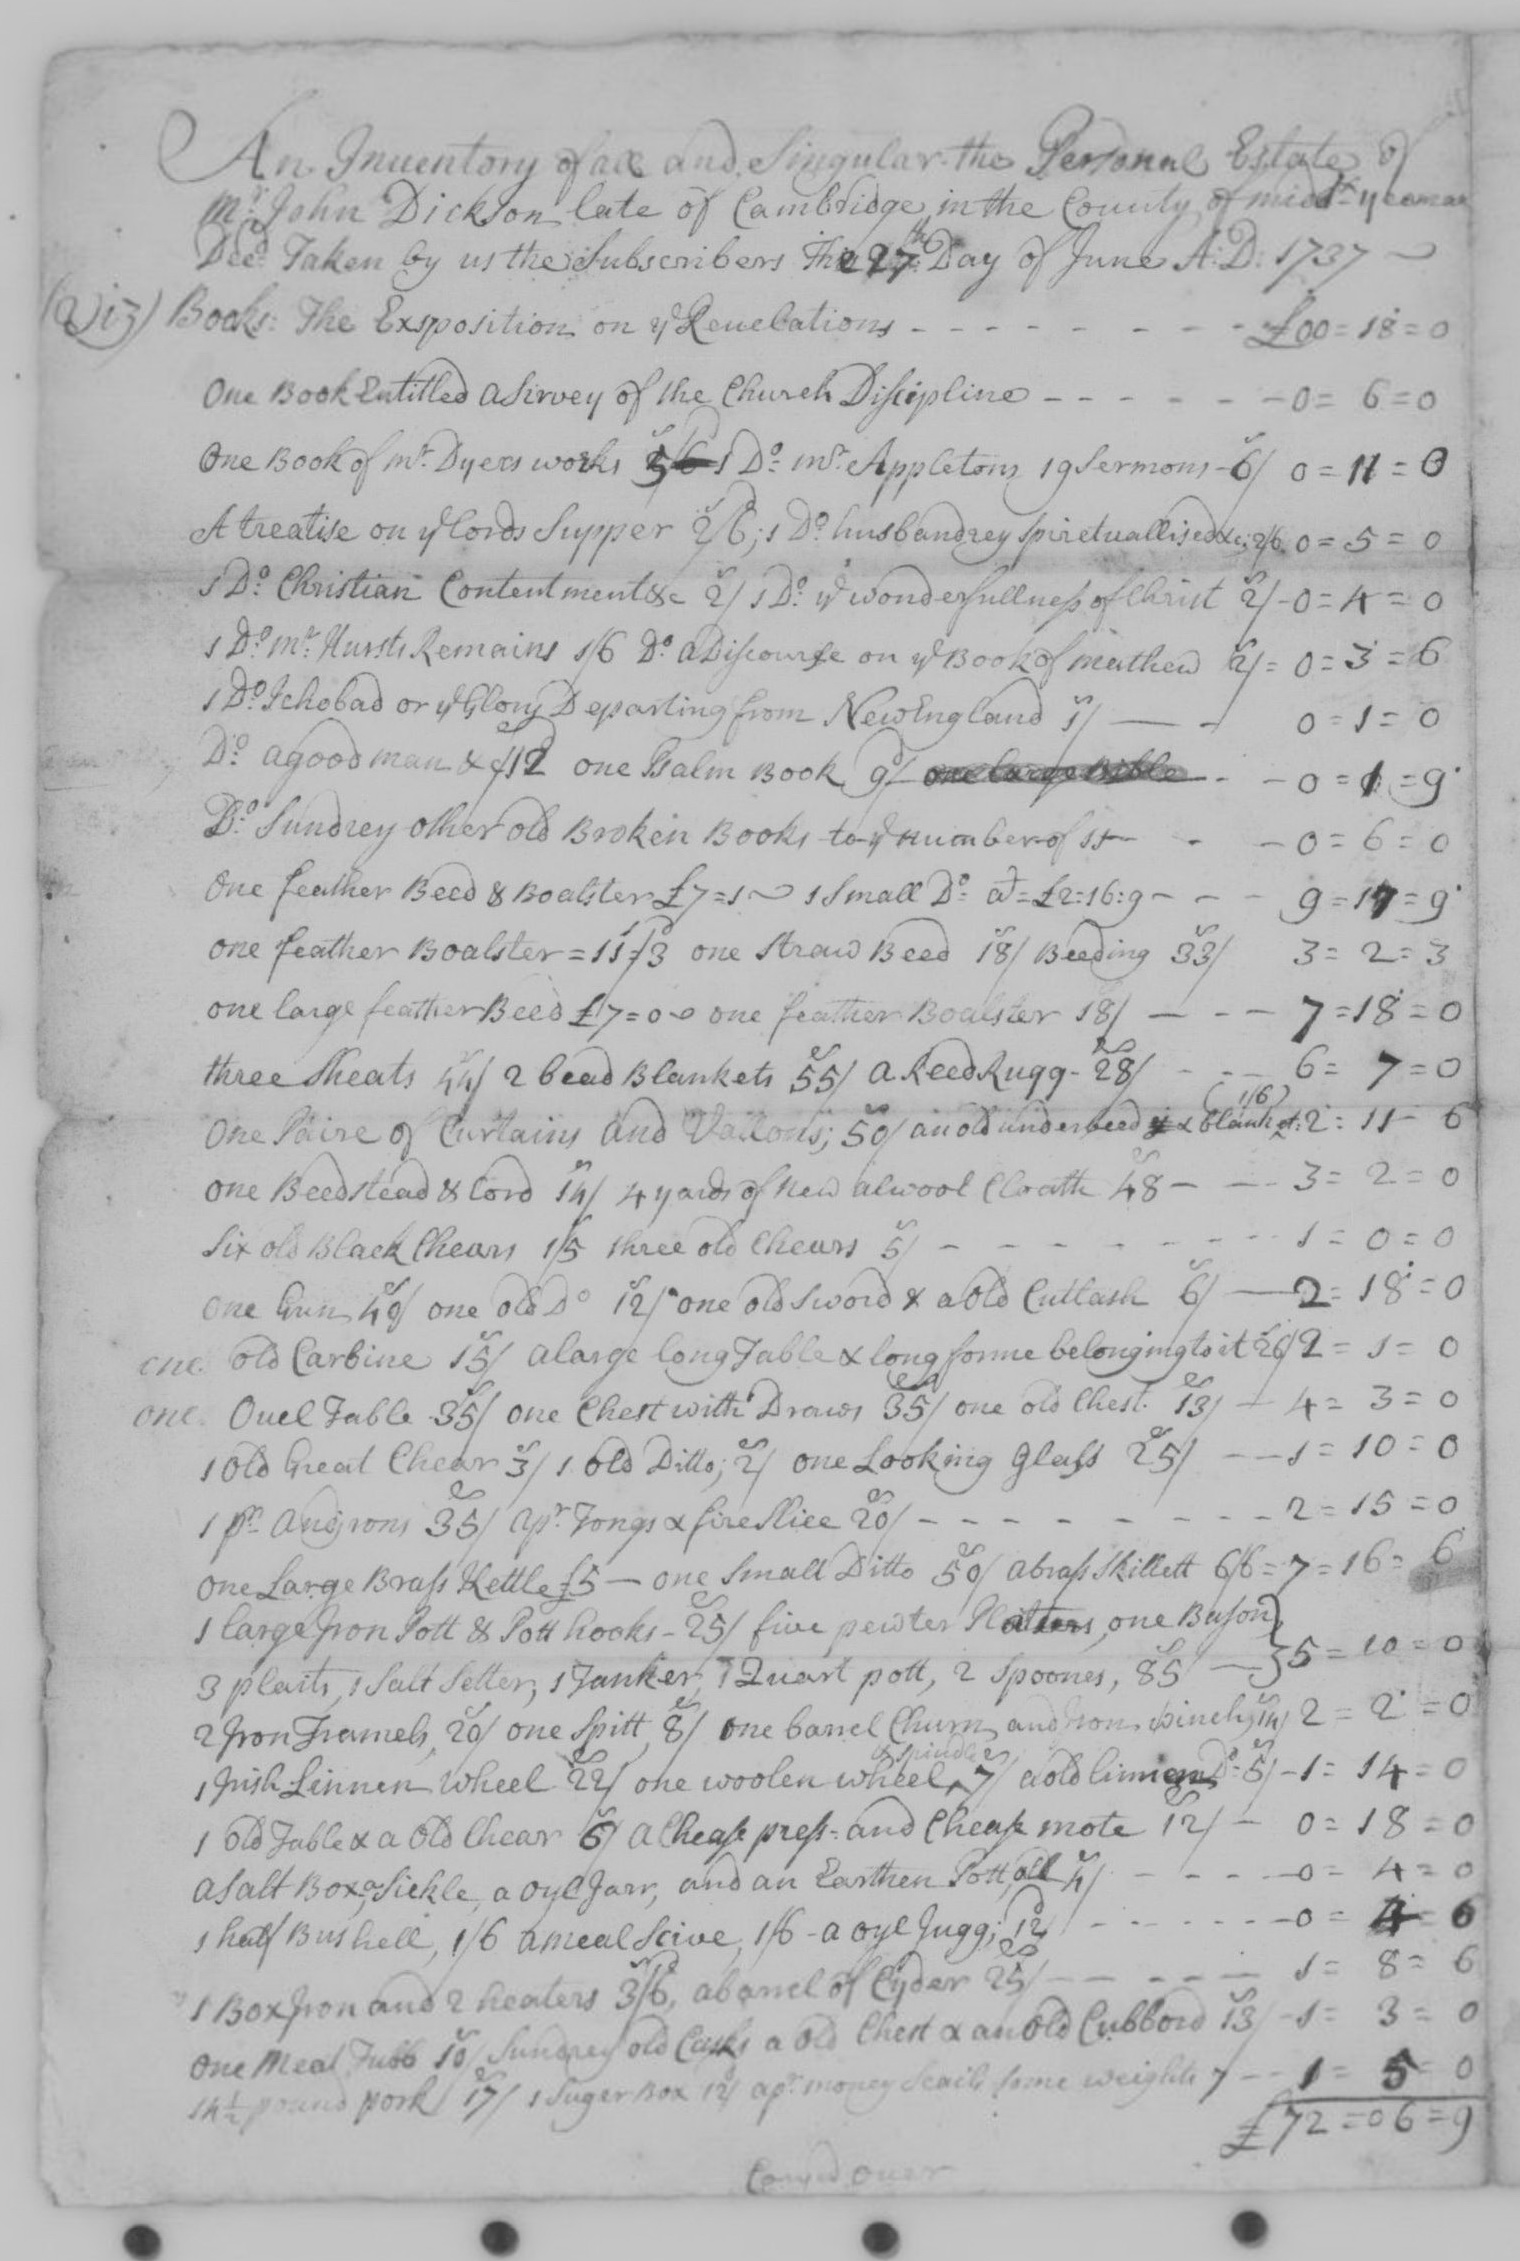 An Inuentory of all and Singular the Personal Estate of
Mr. John Dickson late of Cambridge in the County of midd:x yeoman
Decd. Taken by us the Subscribers This 27th Day of June A:D: 1737
(Viz) Books: The Exsposition on ye Reuelations - - - - - - - - - £00=18=0
One Book Entitled a Sirvey of the Church Discipline - - - - - - 0= 6=0
One Book of mr. Dyers works 5/ 1 Do= mr. Appletons 19 Sermons - 6/ 0=11=0
A treatise on ye lords Supper 2/6; 1 Do husbandrey spiretuallised &c; 2/6 0=5=0
1 Do. Christian Contentment &c 2/ 1 Do. ye wonderfullness of Christ 2/ - 0=4=0
1 Do. mr. Hursts Remains 1/6 Do. a Discourse on ye Book of mathew 2/ = 0=3=6
1 Do. Ichobad or ye Glory Departing from NewEngland 1/ — - 0=1=0
Do. a good man &c 12 one Psalm Book 9d/ one large Bible - - 0=1=9
Do. Sundrey other old Broken Books to ye number of 11 - - - 0=6=0
One feather Beed & Boalster £7=1 1 Small Do= at = £2:16:9 - - - 9=17=9
one feather Boalster = 11/3 one Straw Beed 18/ Beeding 33/ 3=2=3
one large feather Beed £7=0 one feather Boalster 18/ — - - 7=18=0
three Sheats 44/ 2 bead Blankets 55/ a Reed Rugg - 28/ - - - 6= 7=0
(1/6)
One Paire of Curtains and Vallons; 50/ an old underbeed & Blanket: 2: 11- 6
one Beedstead & Cord 14/ 4 yards of new alwool Cloath 48 - - - 3= 2=0
Six old Black Chears 15 three old Chears 5/ - - - - - - - - 1=0=0
one Gun 40/ one old Do 12/ one old Sword & a old Cuttash 6/ — 2=18=0
one old Carbine 15/ a large long Table & long forme belonging to it 26/ 2=1=0
one Ouel Table 35/ one Chest with Draws 35/ one old Chest 13/ - 4=3=0
1 old Great Chear 3/ 1 old Ditto; 2/ one Looking Glass 25/ - - 1=10=0
1 pr. Andjrons 35/ a pr. Tongs & fire Slice 20/ - - - - - - - - 2=15=0
one Large Brass Kettle £5 — one Small Ditto 50/ a brass Skillett 6/6 = 7=16= 6
1 large Iron Pott & Pott hooks - 25/ five pewter Platters, one Bason
3 plaits, 1 Salt Seller, 1 Tanker, 1 Quart pott, 2 Spoones, 85 — } 5=10=0
2 Iron Tramels, 20/ one Spitt, 8/ one barrel Churn and Iron 14/ 2=2=0
& spindles
1 Irish Linnen wheel 22/ one woolen wheel 7/ a old linnen Do= 5/ - 1=14=0
1 old Table & a old Chear 6/ a Chease press = and Chease mote 12/ - 0=18=0
a Salt Box, a Sickle, a oyl Jarr, and an Earthen Pott, all 4/ - - - - 0=4=0
1 half Bushell, 1/6 a meal Scive, 1/6 - a oyl Jugg; 12 - - - - - - 0=4=6
1 Box Iron and 2 heaters 3/6, a barrel of Cyder 25/ - - - - - 1= 8= 6
One Meal Tubb 10/ Sundrey old Casks a old Chest & an old Cubbord 13/ - 1= 3= 0
14½ pound pork 17/ 1 Suger Box 12 a pr. money Scails some weights 7 - - 1= 5= 0
£72=06=9
Caryed ouer